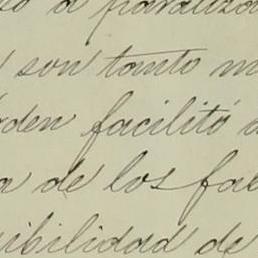 a paraliza
son tanto m
rden facilitó a
a de los fab
ibilidad de